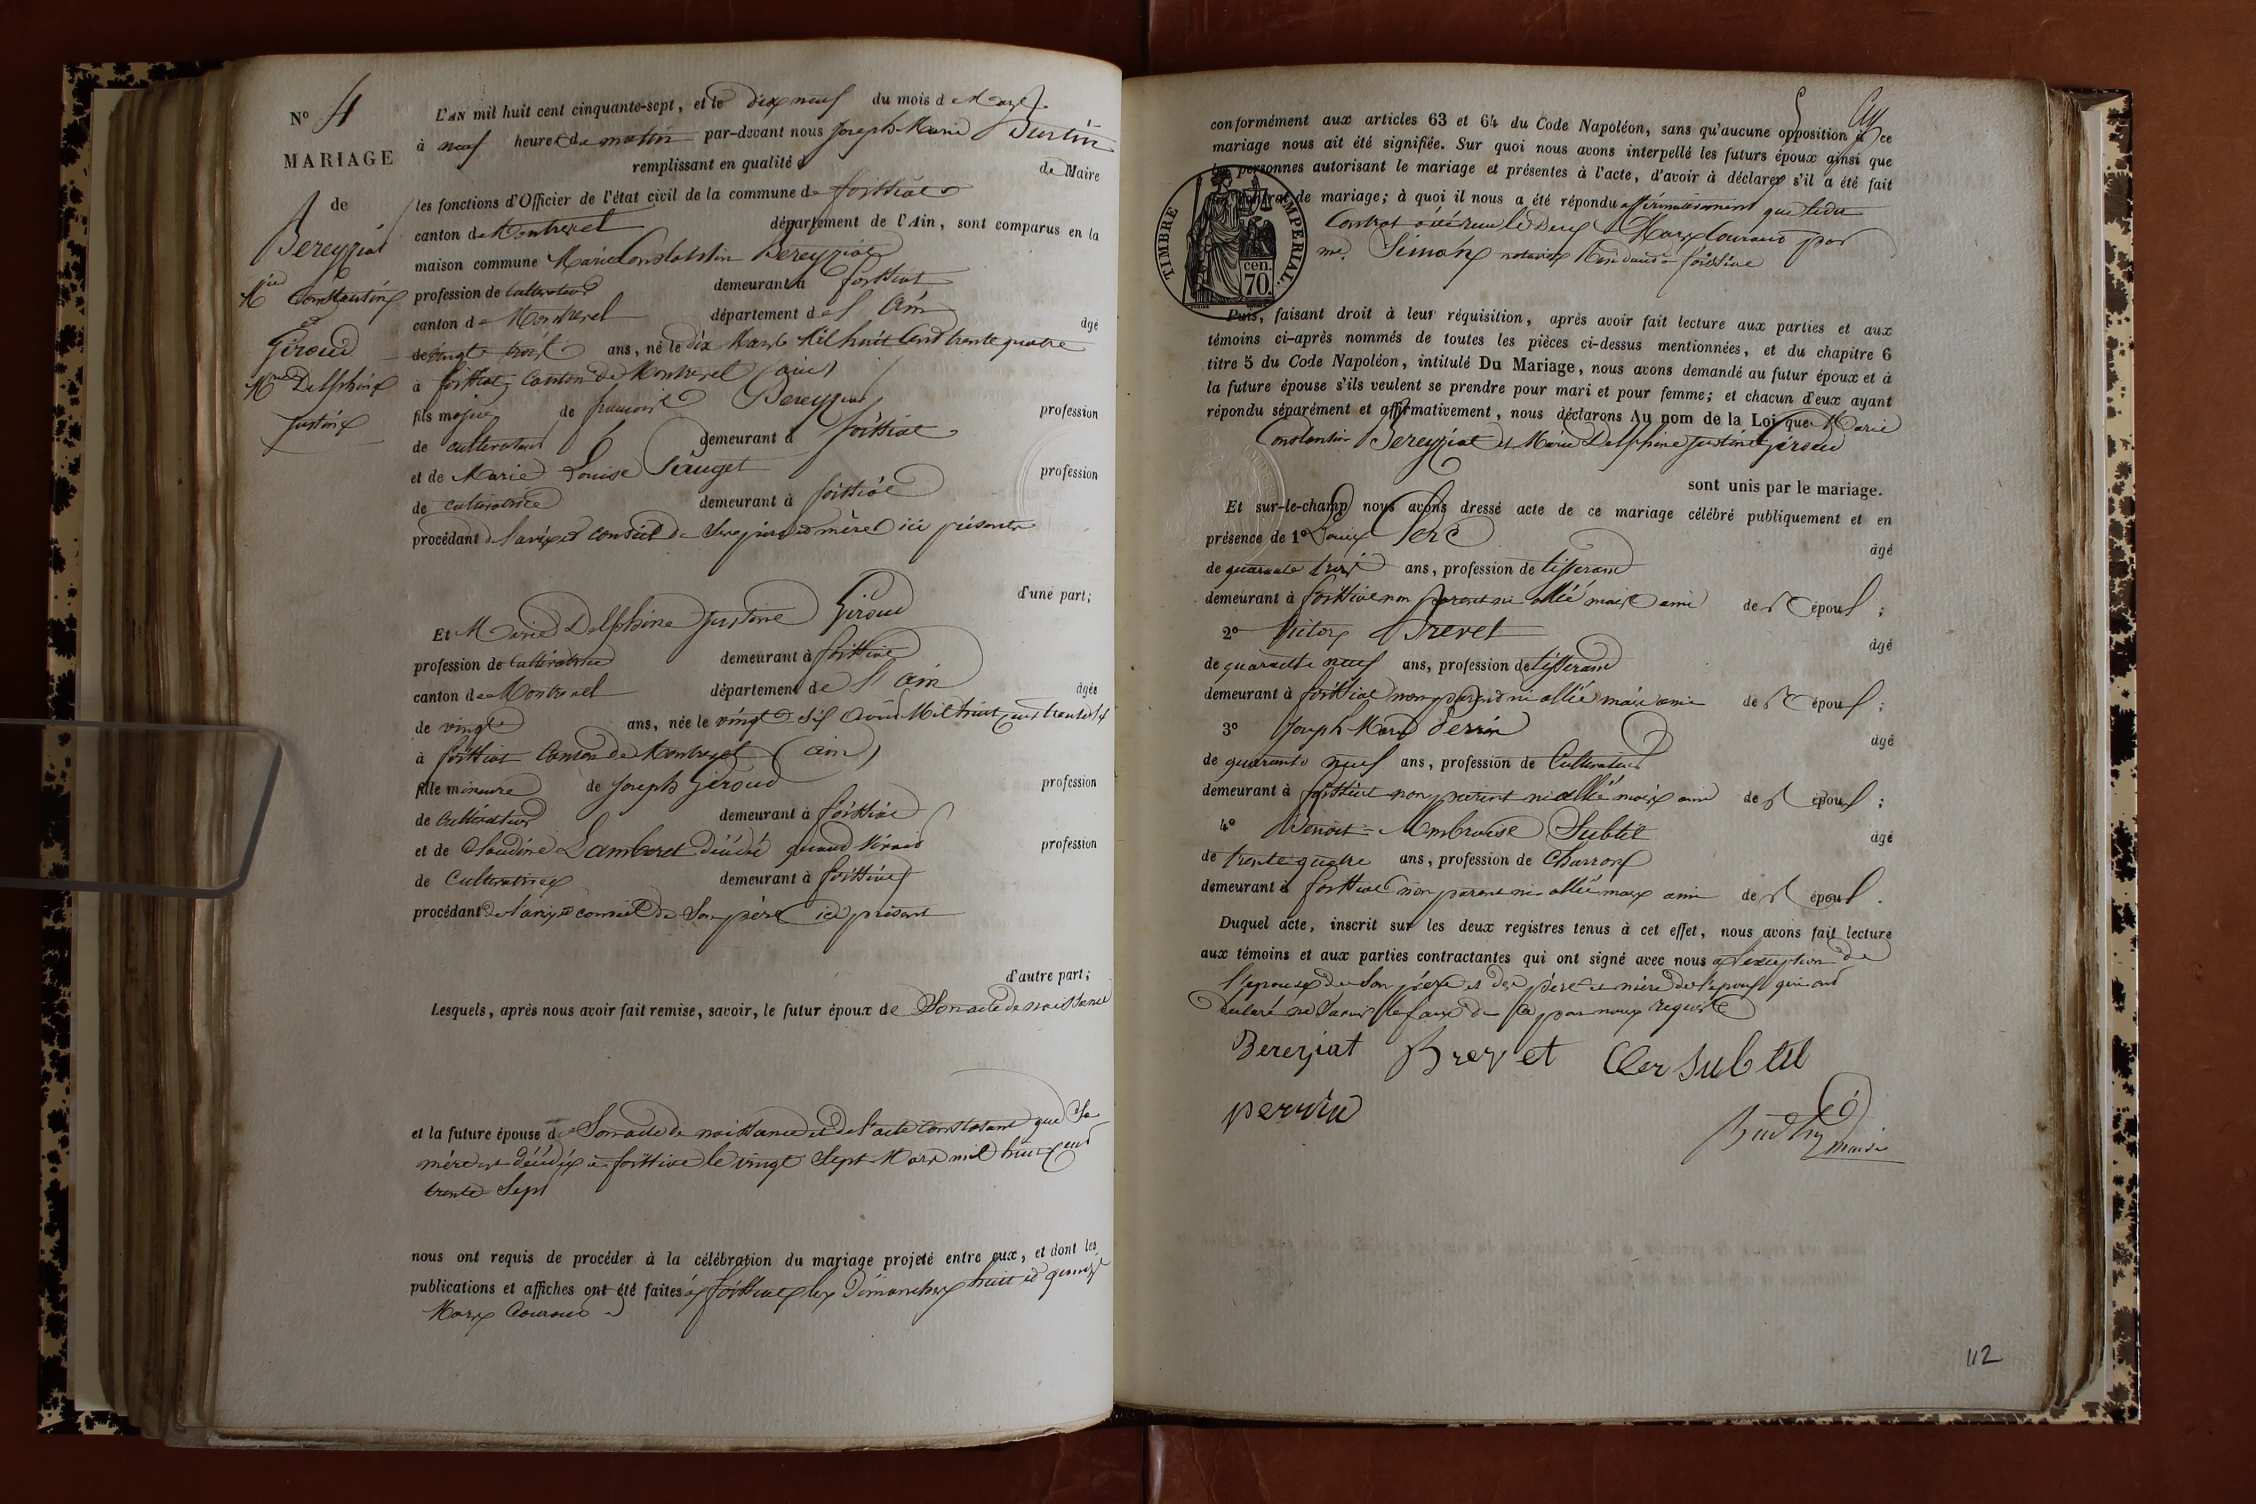 N° 4
MARIAGE
de
Bereyziat
Mie Constantin
et
Giroud
Mie Delphine
Justine
L'AN mil huit cent cinquante-sept, et le dix neuf du mois de Mars
à neuf heures du matin par-devant nous Joseph Marie
remplissant en qualité de Maire
les fonctions d'Officier de l'état civil de la commune de foissiat
canton de Montrevel département de l'Ain, sont comparus en la
maison commune Marie Constantin Bereyziat
profession de Cultivateur demeurant à foissiat
canton de Montrevel département de l'Ain âgé
de vingt trois ans, né le dix Mars Mil huit Cent trente quatre
à foissiat Canton de Montrevel (ain)
fils majeur de françois Bereyziat profession
de cultivateur demeurant à foissiat
et de Marie Louise Pauget profession
de cultivatrice demeurant à foissiat
procédant de l'avis et conseil de Ses père et mère ici présents
d'une part;
Et Marie Delphine Justine Giroud
profession de Cultivatrice demeurant à foissiat
canton de Montrevel département de l'Ain âgée
de vingt ans, née le vingt six Août Mil huit cent trente six
à foissiat Canton de Montrevel (ain)
fille mineure de Joseph Giroud profession
de Cultivateur demeurant à foissiat
et de Claudine Lambert décédée quand vivait profession
de Cultivatrice demeurant à foissiat
procédant de l'avis et conseil de Son père ici présent
d'autre part;
Lesquels, après nous avoir fait remise, savoir, le futur époux de Son acte de naissance
et la future épouse de Son acte de naissance et de l'acte Constatant que Sa
mère est décédée à foissiat le vingt Sept Mars mil huit cent
trente Sept
nous ont requis de procéder à la célébration du mariage projeté entre eux, et dont les
publications et affiches ont été faites à foissiat les Dimanches huit et quinze
Mars Courant
conformément aux articles 63 et 64 du Code Napoléon, sans qu'aucune opposition à ce
mariage nous ait été signifiée. Sur quoi nous avons interpellé les futurs époux ainsi que
les personnes autorisant le mariage et présentes à l'acte, d'avoir à déclarer s'il a été fait
contrat de mariage; à quoi il nous a été répondu affirmativement que ledit
Contrat a été reçu le Deux Mars Courant par
me. Simon notaire Résidant à foissiat
TIMBRE IMPERIAL.
70. cen.
Puis, faisant droit à leur réquisition, après avoir fait lecture aux parties et aux
témoins ci-après nommés de toutes les pièces ci-dessus mentionnées, et du chapitre 6
titre 5 du Code Napoléon, intitulé Du Mariage, nous avons demandé au futur époux et à
la future épouse s'ils veulent se prendre pour mari et pour femme; et chacun d'eux ayant
répondu séparément et affirmativement, nous déclarons Au nom de la Loi que Marie
Constantin Bereyziat et Marie Delphine Justine Giroud
sont unis par le mariage.
Et sur-le-champ nous avons dressé acte de ce mariage célébré publiquement et en
présence de 1° Louis Clerc âgé
de quarante trois ans, profession de tisserand
demeurant à foissiat non parent ni allié mais ami de l'époux;
2° Victor Brevet âgé
de quarante neuf ans, profession de tisserand
demeurant à foissiat non parent ni allié mais ami de l'époux;
3° Joseph Marie Perrin âgé
de quarante neuf ans, profession de Cultivateur
demeurant à foissiat non parent ni allié mais ami de l'époux;
4° Benoit-Ambroise Subtil âgé
de trente quatre ans, profession de Charron
demeurant à foissiat non parent ni allié mais ami de l'époux.
Duquel acte, inscrit sur les deux registres tenus à cet effet, nous avons fait lecture
aux témoins et aux parties contractantes qui ont signé avec nous à l'exception de
l'épouse de Son père et des père et mère de l'époux qui ont
déclaré ne Savoir le faire de ce par nous requis
Bereziat Brevet Cler Subtil
perrin
maire
112